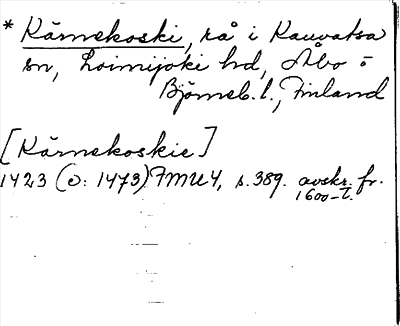 * Kärnekoski, rå i Kauvatsa
sn, Loimijoki hd, Åbo o
Björneb. l., Finland
[Kärnekoskie]
1423 (o: 1473) FMU 4, s. 389. avskr. fr.
1600-t.